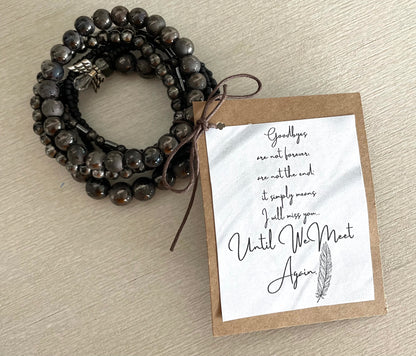 Goodbyes
are not forever
are not the end.
it simply means
I will miss you...
Until We Meet
Again.